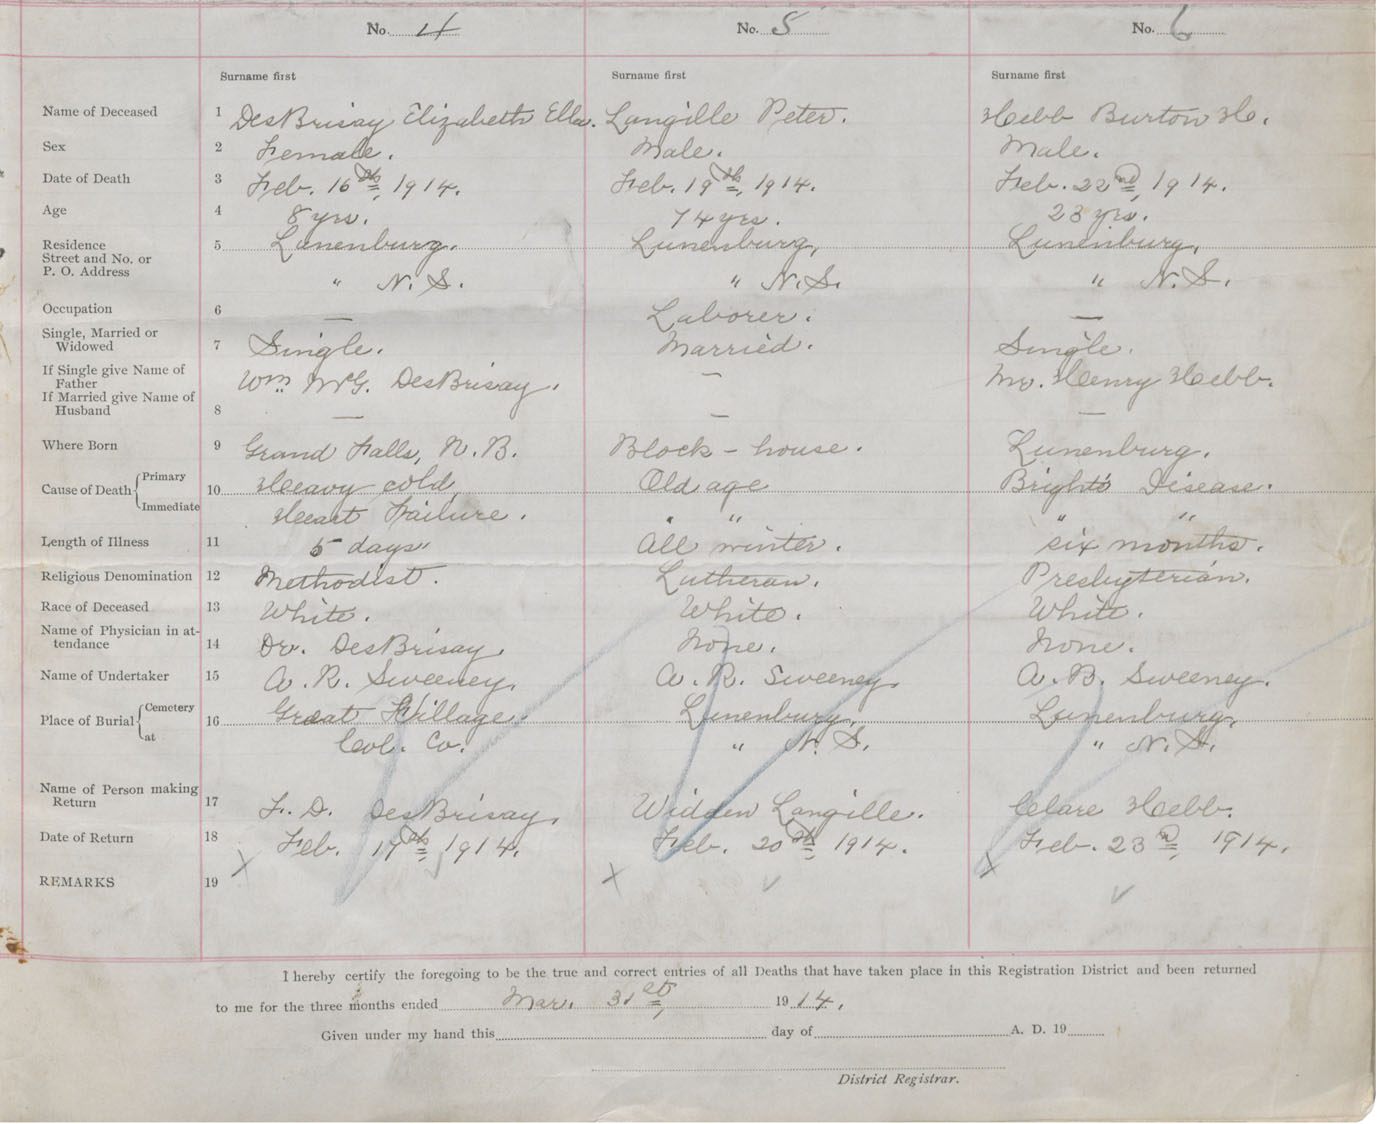 No. 4 No. 5 No. 6
Surname first Surname first Surname first
Name of Deceased 1 DesBrisay Elizabeth Ella. Langille Peter. Hebb Burton H.
Sex 2 Female. Male. Male.
Date of Death 3 Feb. 16th, 1914. Feb. 19th, 1914. Feb. 22nd, 1914.
Age 4 8 yrs. 74 yrs. 23 yrs.
Residence 5 Lunenburg. Lunenburg, Lunenburg,
Street and No. or
P. O. Address " N. S. " N. S. " N. S.
Occupation 6 — Laborer. —
Single, Married or
Widowed 7 Single. Married. Single.
If Single give Name of
Father Wm. McG. DesBrisay. — Mr. Henry Hebb.
If Married give Name of
Husband 8 — — —
Where Born 9 Grand Falls, N. B. Block-house. Lunenburg.
Cause of Death { Primary 10 Heavy cold Old age Bright's Disease.
Immediate Heart Failure. " " " "
Length of Illness 11 5 days All winter. six months.
Religious Denomination 12 Methodist. Lutheran. Presbyterian.
Race of Deceased 13 White. White. White.
Name of Physician in at-
tendance 14 Dr. DesBrisay. None. None.
Name of Undertaker 15 A. R. Sweeney. A. R. Sweeney. A. B. Sweeney.
Place of Burial { Cemetery 16 Great Village. Lunenburg, Lunenburg,
at Col. Co. " N. S. " N. S.
Name of Person making
Return 17 F. D. DesBrisay. Widdow Langille. Clare Hebb.
Date of Return 18 Feb. 19th, 1914. Feb. 20th, 1914. Feb. 23rd, 1914.
REMARKS 19
I hereby certify the foregoing to be the true and correct entries of all Deaths that have taken place in this Registration District and been returned
to me for the three months ended Mar. 31st, 1914.
Given under my hand this day of A. D. 19
District Registrar.